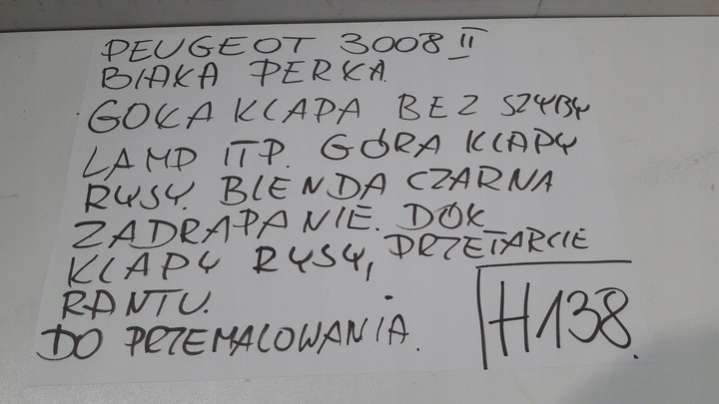 PEUGEOT 3008 II
BIAŁA PERŁA
GOŁA KLAPA BEZ SZYBY
LAMP ITP. GÓRA KLAPY
RYSY. BLENDA CZARNA
ZADRAPANIE. DÓŁ
KLAPY RYSY, PRZETARCIE
RANTU.
DO PRZEMALOWANIA.
H138.